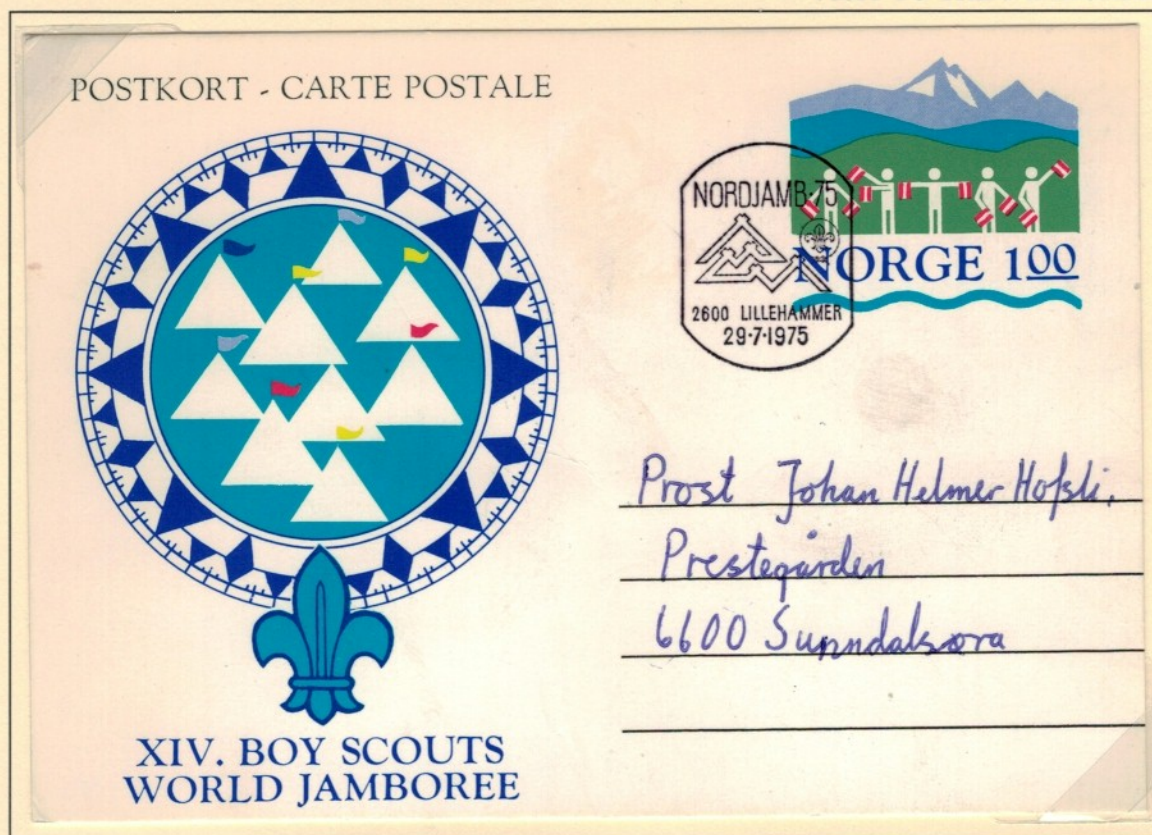 POSTKORT - CARTE POSTALE
NORDJAMB·75
2600 LILLEHAMMER
29·7·1975
NORGE 100
Prost Johan Helmer Hofsli,
Prestegården
6600 Sunndalsøra
XIV. BOY SCOUTS
WORLD JAMBOREE